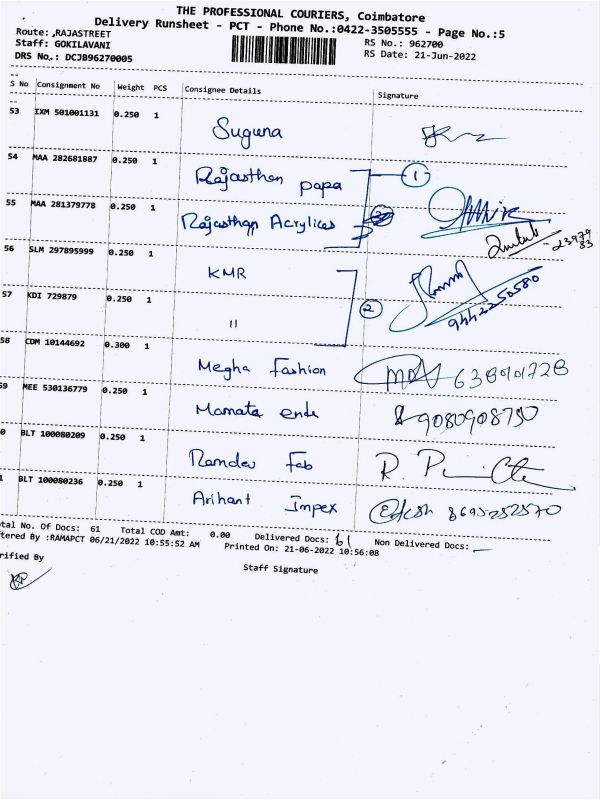 THE PROFESSIONAL COURIERS, Coimbatore
Delivery Runsheet - PCT - Phone No.:0422-3505555 - Page No.:5
Route: ,RAJASTREET
RS No.: 962700
Staff: GOKILAVANI
RS Date: 21-Jun-2022
DRS No.: DCJB96270005
S No Consignment No Weight PCS Consignee Details Signature
53 IXM 501001131 0.250 1 Suguna
54 MAA 282681887 0.250 1 Rajasthan papa 1
55 MAA 281379778 0.250 1 Rajasthan Acrylics
56 SLM 297895999 0.250 1 KMR
9442250580
57 KDI 729879 0.250 1 " 2
58 CDM 10144692 0.300 1 Megha Fashion
59 MEE 530136779 0.250 1 Mamata ende 9080908750
0 BLT 100080209 0.250 1 Ramdev Fab
1 BLT 100080236 0.250 1 Arihant Impex
otal No. Of Docs: 61 Total COD Amt: 0.00 Delivered Docs: 61 Non Delivered Docs: _
tered By :RAMAPCT 06/21/2022 10:55:52 AM Printed On: 21-06-2022 10:56:08
rified By
Staff Signature